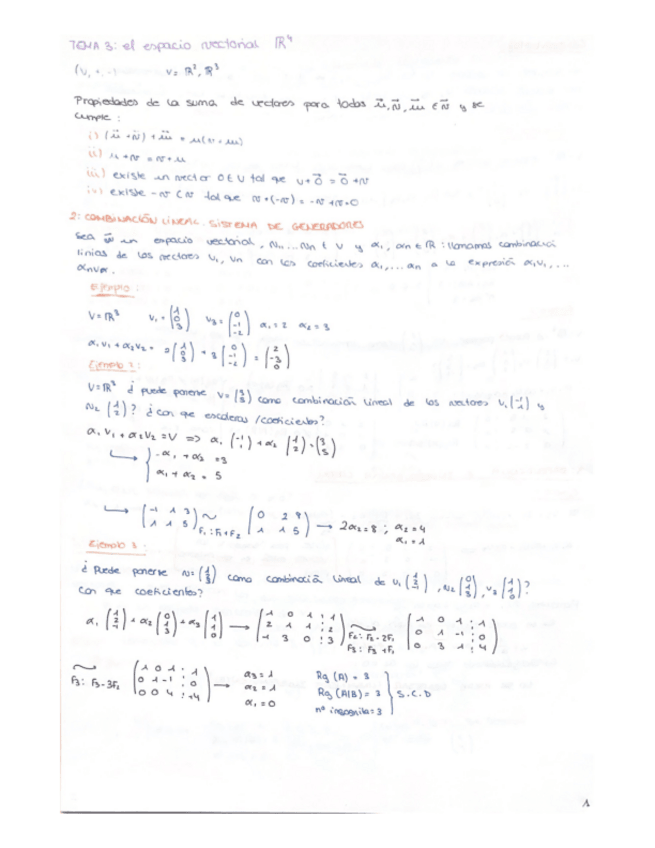 TEMA 3: el espacio vectorial ℝ⁴
V = ℝ², ℝ³
Propiedades de la suma de vectores para todas u⃗, v⃗, w⃗ ∈ v⃗ y se
cumple:
i) (u⃗ + v⃗) + w⃗ = u(v + w)
ii) u + v = v + u
iii) existe un vector 0 ∈ V tal que v + 0⃗ = 0⃗ + v
iv) existe -v ∈ v tal que v + (-v) = -v + v = 0
2: COMBINACIÓN LINEAL. SISTEMA DE GENERADORES
Sea un espacio vectorial, v₁...vn ∈ V y α₁, αn ∈ ℝ: llamamos combinación
de los vectores v₁, vn con los coeficientes α₁,...αn a la expresión α₁v₁,...
αnvn.
Ejemplo:
V = ℝ³ v₁ = (1 0 3) (0 -1 -2) α₁ = 2 α₂ = 3
α₁v₁ + α₂v₂ = 2(1 0 3) + 3(0 -1 -2) = (2 -3 0)
Ejemplo
¿puede ponerse v = (3 5) como combinación lineal de los vectores v₁(-1 1) y
¿con que escalares/coeficientes?
α₁v₁ + α₂v₂ = V => α₁(-1 1) + α₂
-α₁ + α₂ = 3
α₁ + α₂ = 5
(-1 1 3
1 1 5) ~ F₁: F₁+F₂ (0 2 8
1 1 5) → 2α₂ = 8; α₂ = 4
α₁ = 1
Ejemplo
¿Puede ponerse v = como combinación lineal de v₁(1 2 -1), v₂(0 1 3), v₃(1 1 0)?
Con que coeficientes?
α₁(1 2 -1) + α₂(0 1 3) + α₃(1 1 0) → (1 0 1 : 1
2 1 1 : 2
-1 3 0 : 3) ~ F₂: F₂-2F₁ F₃: F₃+F₁ (1 0 1 : 1
0 1 -1 : 0
0 3 1 : 4)
~ F₃: F₃-3F₂ (1 0 1 : 1
0 1 -1 : 0
0 0 4 : 4) → α₃ = 1
α₂ = 1
α₁ = 0
Rg (A) = 3
Rg (A|B) = 3
nº incognita = 3
S.C.D
A